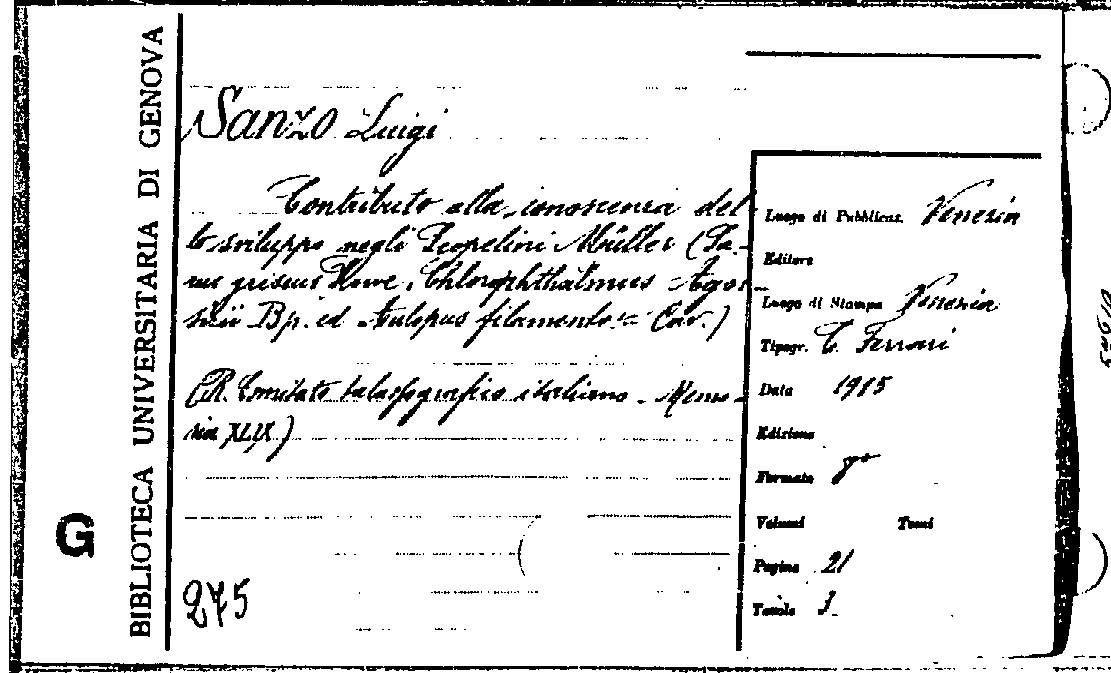 BIBLIOTECA UNIVERSITARIA DI GENOVA
G
Sanzo Luigi
Contributo alla conoscenza del-
lo sviluppo negli Scopelini Müller (Sau-
rus griseus Lowe, Chlorophthalmus Agas-
sizii Bp. ed Aulopus filamentosus Cuv.)
(R. Comitato talassografico italiano - Memo-
ria XLIX)
275
Luogo di Pubblicaz. Venezia
Editore
Luogo di Stampa Venezia
Tipogr. C. Ferrari
Data 1915
Edizione
Formato 8°
Volumi Tomi
Pagine 21
Tavole 1